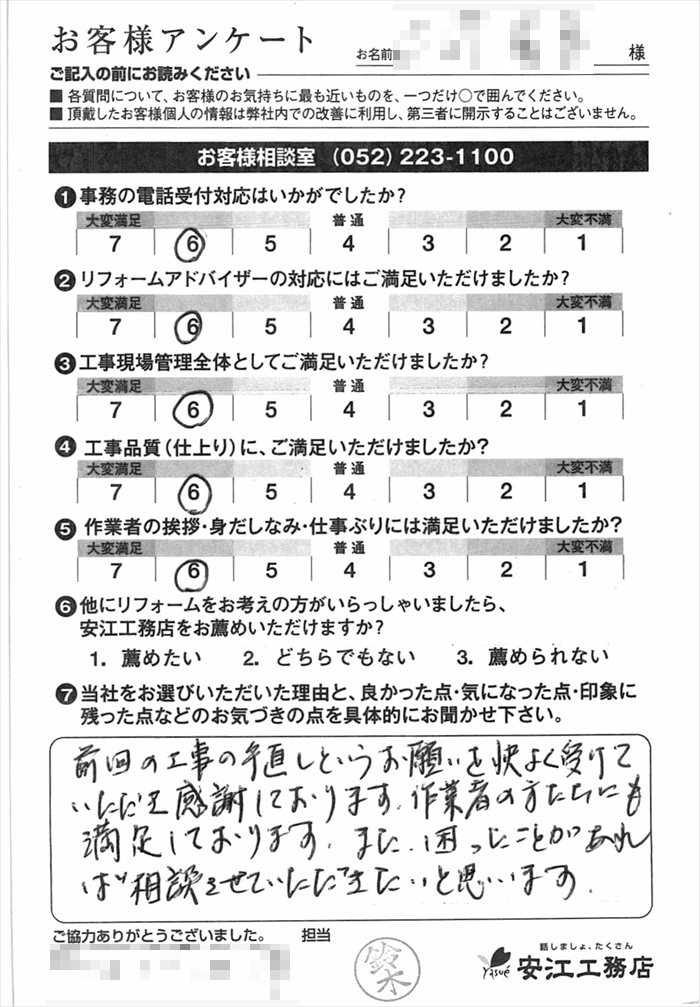 お客様アンケート
お名前
様
ご記入の前にお読みください
■ 各質問について、お客様のお気持ちに最も近いものを、一つだけ○で囲んでください。
■ 頂戴したお客様個人の情報は弊社内での改善に利用し、第三者に開示することはございません。
お客様相談室 (052) 223-1100
❶事務の電話受付対応はいかがでしたか?
大変満足 普通 大変不満
7 6 5 4 3 2 1
❷リフォームアドバイザーの対応にはご満足いただけましたか?
大変満足 普通 大変不満
7 6 5 4 3 2 1
❸工事現場管理全体としてご満足いただけましたか?
大変満足 普通 大変不満
7 6 5 4 3 2 1
❹ 工事品質(仕上り)に、ご満足いただけましたか?
大変満足 普通 大変不満
7 6 5 4 3 2 1
❺ 作業者の挨拶・身だしなみ・仕事ぶりには満足いただけましたか?
大変満足 普通 大変不満
7 6 5 4 3 2 1
❻他にリフォームをお考えの方がいらっしゃいましたら、
安江工務店をお薦めいただけますか?
1. 薦めたい 2. どちらでもない 3. 薦められない
❼当社をお選びいただいた理由と、良かった点・気になった点・印象に
残った点などのお気づきの点を具体的にお聞かせ下さい。
前回の工事の手直しというお願いを快よく受けて
いただき感謝しております。作業者の方たちにも
満足しております。また、困ったことがあれ
ば相談させていただきたいと思います。
ご協力ありがとうございました。 担当
鈴木
話しましょ、たくさん
Yasué 安江工務店